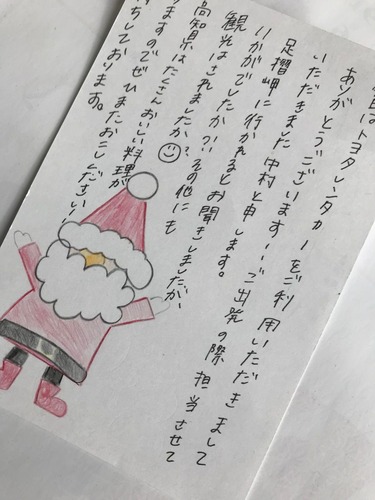 はトヨタレンタカーをご利用いただきまして
ありがとうございます!ご出発の際担当させて
いただきました中村と申します。
足摺岬に行かれるとお聞きしましたが、
いかがでしたか?!その他にも
観光はされましたか?
高知県はたくさんおいしい料理が
りますのでぜひまたおこしください!
ちしております。